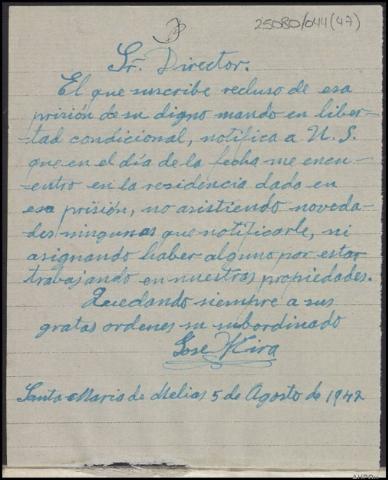 25080/044(47)
Sr. Director.
El que suscribe recluso de esa
prisión de su digno mando en liber-
tad condicional, notifica a U. S.
que en el día de la fecha me encu-
entro en la residéncia dada en
esa prisión, no asistiendo noveda-
des ningunas que notificarle, ni
asignando haber alguno por estar
trabajando en nuestras propiedades.
Quedando siempre a sus
gratas ordenes su subordinado
José
Santa Maria de Melias 5 de Agosto de 1942